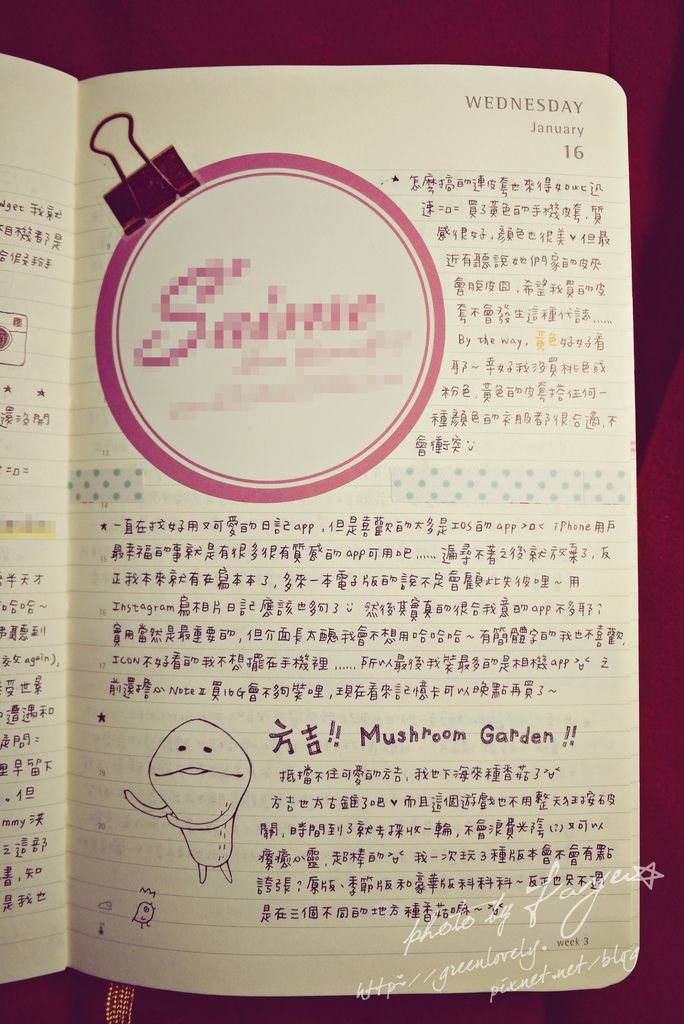 WEDNESDAY
January
16
怎麼搞的連皮套也來得如此迅
速=口= 買了黃色的手機皮套,質
感很好,顏色也很美♥但最
近有聽說她們家的皮夾
會脫皮囧,希望我買的皮
套不會發生這種代誌......
By the way, 黃色好好看
耶~幸好我沒買桃色或
粉色,黃色的皮套搭任何一
種顏色的衣服都很合適,不
會衝突
13
14
★一直在找好用又可愛的日記app,但是喜歡的大多是IOS的app >口< iPhone用戶
最幸福的事就是有很多很有質感的app可用吧......遍尋不著之後就放棄了,反
正我本來就有在寫本本了,多來一本電子版的說不定會顧此失彼哩~用
Instagram寫相片日記應該也夠了 然後其實真的很合我意的app不多耶?
實用當然是最重要的,但介面長太醜我會不想用哈哈哈~有簡體字的我也不喜歡,
ICON不好看的我不想擺在手機裡......所以最後我裝最多的是相機app 之
前還擔心Note II買16G會不夠裝哩,現在看來記憶卡可以晚點再買了~
方吉!! Mushroom Garden!!
抵擋不住可愛的方吉,我也下海來種香菇了
方吉也太古錐了吧♥而且這個遊戲也不用整天狂按破
關,時間到了就去採收一輪,不會浪費光陰 又可以
療癒心靈,超棒的 我一次玩3種版本會不會有點
誇張?原版、季節版和豪華版科科科~反正也只不過
是在三個不同的地方種香菇嘛~
week 3
photo by Faye
http://greenlovely.
pixnet.net/blog
dget 我就
相機都是
還沒開
=口=
半天才
哈哈~
聽到
again),
受世界
遭遇和
早留下
。但
mmy
這部
書,知
是我也